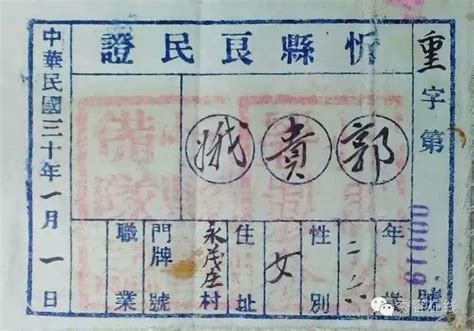 忻縣良民證
重字第號
郭貴娥
年二六歲
性別女
住址永茂庄村
門牌號
職業
中華民國三十年一月一日
備隊